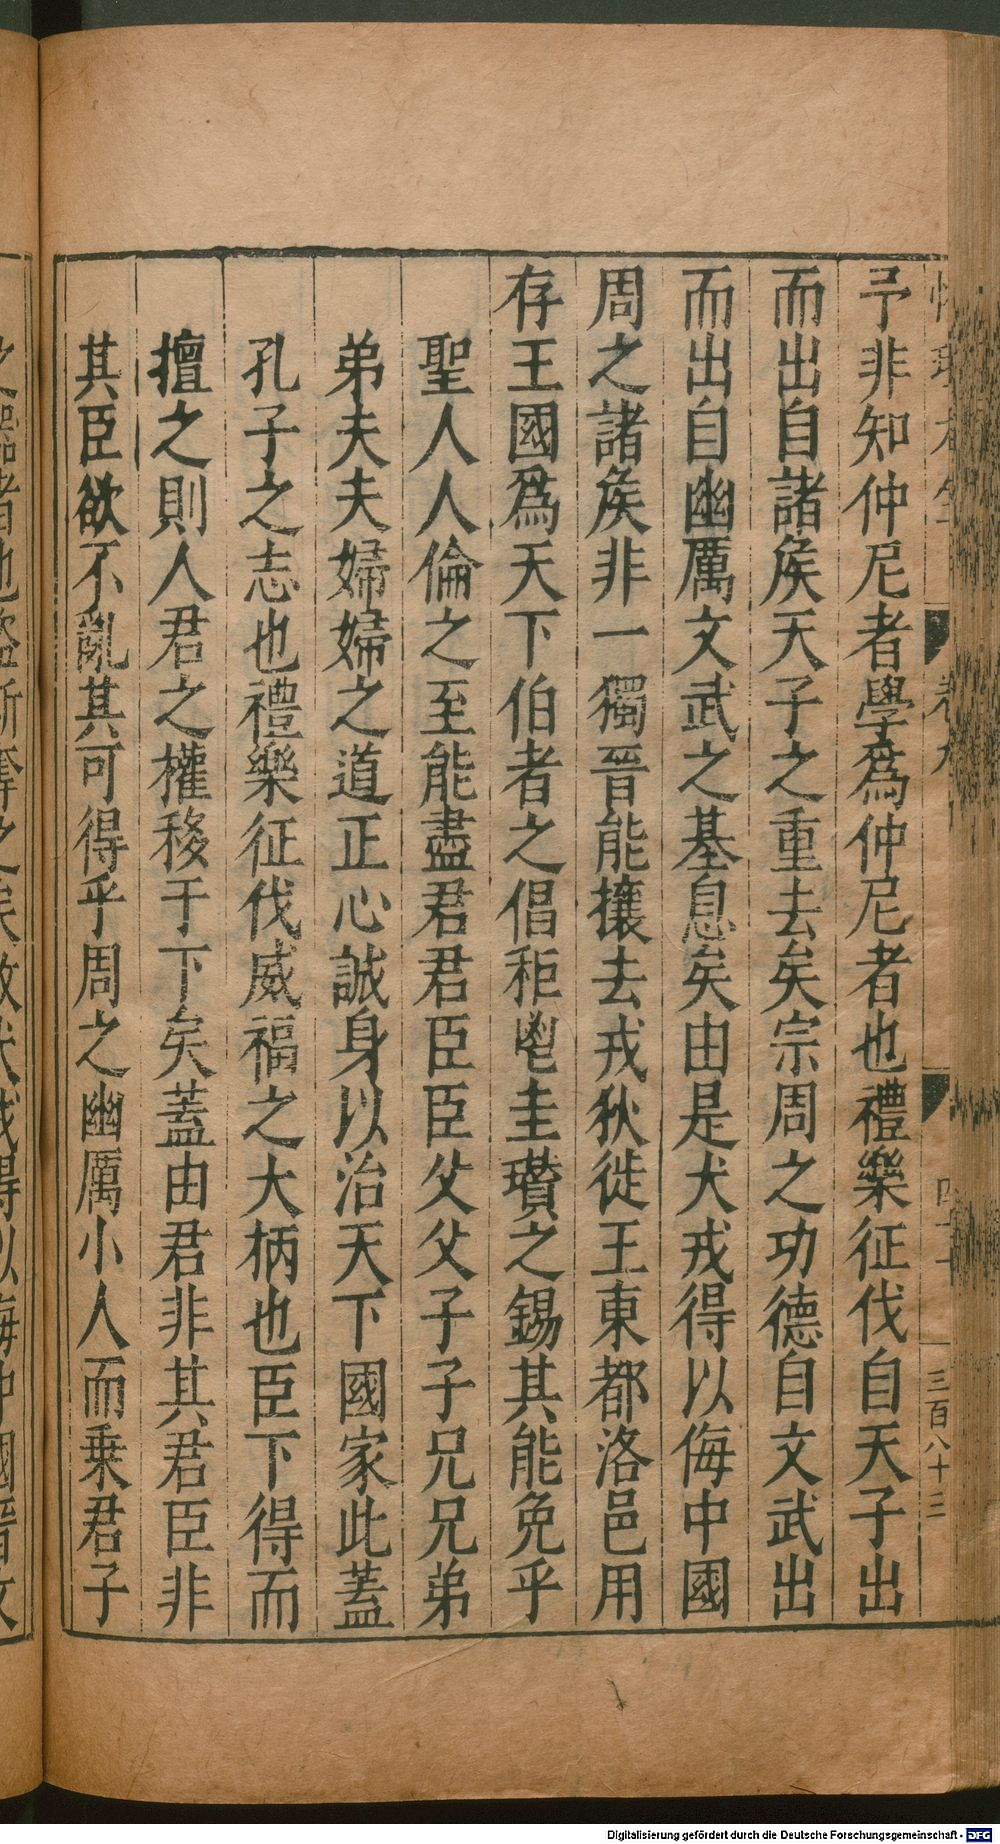 予非知仲尼者學爲仲尼者也禮樂征伐自天子出
而出自諸矦天子之重去矣宗周之功德自文武出
而出自幽厲文武之基息矣由是犬戎得以侮中國
周之諸矦非一獨晉能攘去戎狄徙王東都洛邑用
存王國爲天下伯者之倡秬鬯圭瓚之錫其能免乎
聖人人倫之至能盡君君臣臣父父子子兄兄弟
弟夫夫婦婦之道正心誠身以治天下國家此蓋
孔子之志也禮樂征伐威福之大柄也臣下得而
擅之則人君之權移于下矣蓋由君非其君臣非
其臣欲不亂其可得乎周之幽厲小人而乗君子
卷九
三百八十三
Digitalisierung gefördert durch die Deutsche Forschungsgemeinschaft - DFG